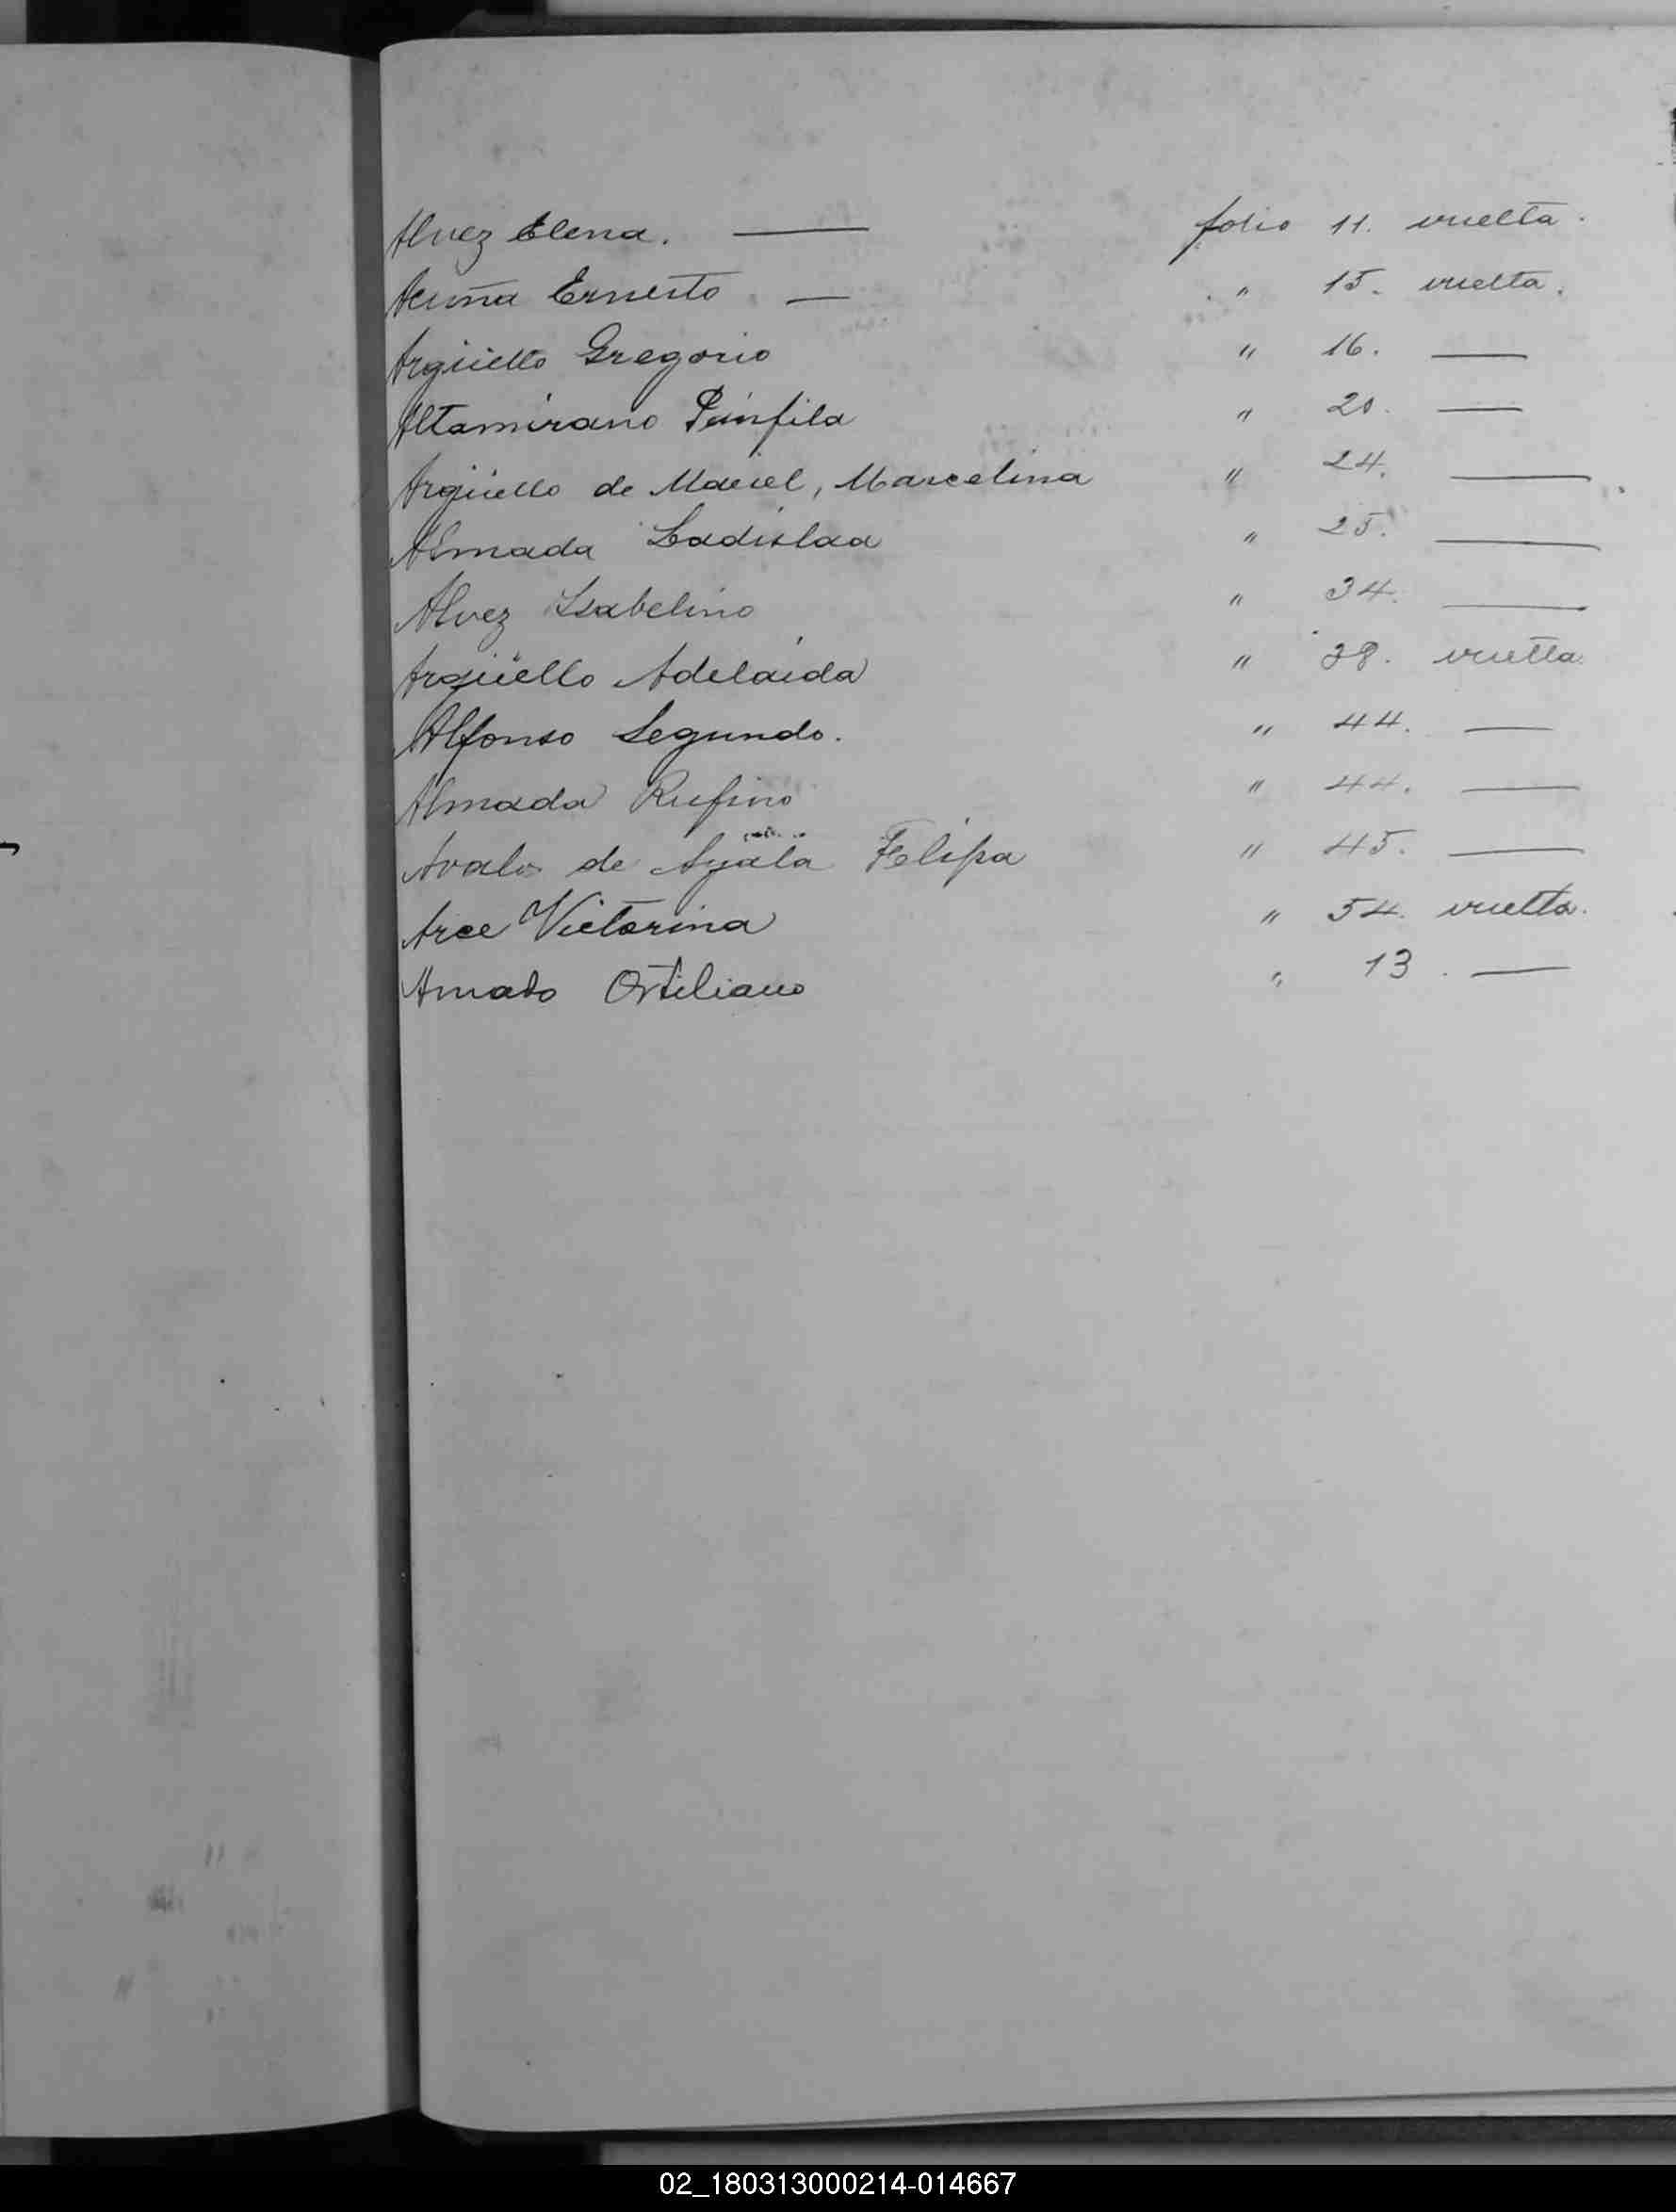 Alvez Elena. —— folio 11. vuelta.
Acuña Ernesto — " 15. vuelta.
Argüello Gregorio " 16. ——
Altamirano Pánfila " 20. ——
Argüello de Maciel, Marcelina " 24. ——
Almada Ladislaa " 25. ——
Alvez Isabelino " 34. ——
Argüello Adelaida " 38. vuelta.
Alfonso Segundo. " 44. ——
Almada Rufino " 44. ——
Avalo de Ayala Felipa " 45. ——
Arce Victorina " 54. vuelta.
Amado Ortiliano " 13. ——
02_180313000214-014667